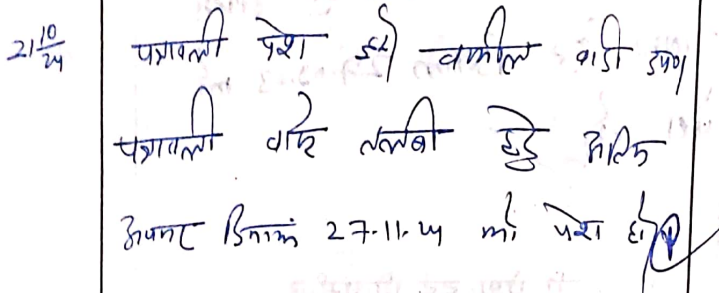 21/10/24 पत्रावली पेश हुई वकील वादी उप०
पत्रावली वास्ते तलबी हेतु अंतिम
अवसर दिनांक 27.11.24 को पेश हो